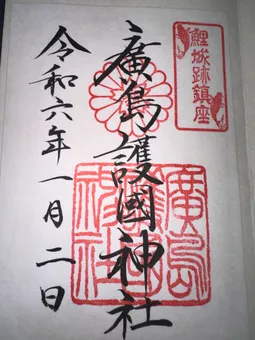 鯉城跡鎮座
廣島護國神社
令和六年一月二日
廣島
護國
神社